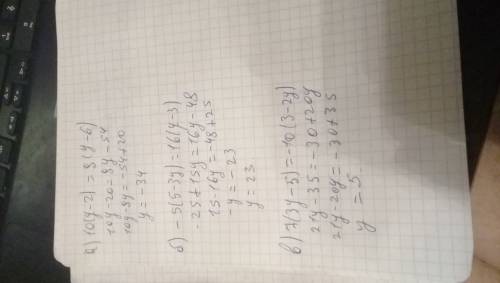 а) 10(y-2) = 9(y-6)
10y-20=9y-54
10y-9y=-54+20
y=-34
б) -5(5-3y)=16(y-3)
-25+15y=16y-48
15-16y=-48+25
-y=-23
y=23
в) 7(3y-5)=-10(3-2y)
21y-35=-30+20y
21y-20y=-30+35
y=5